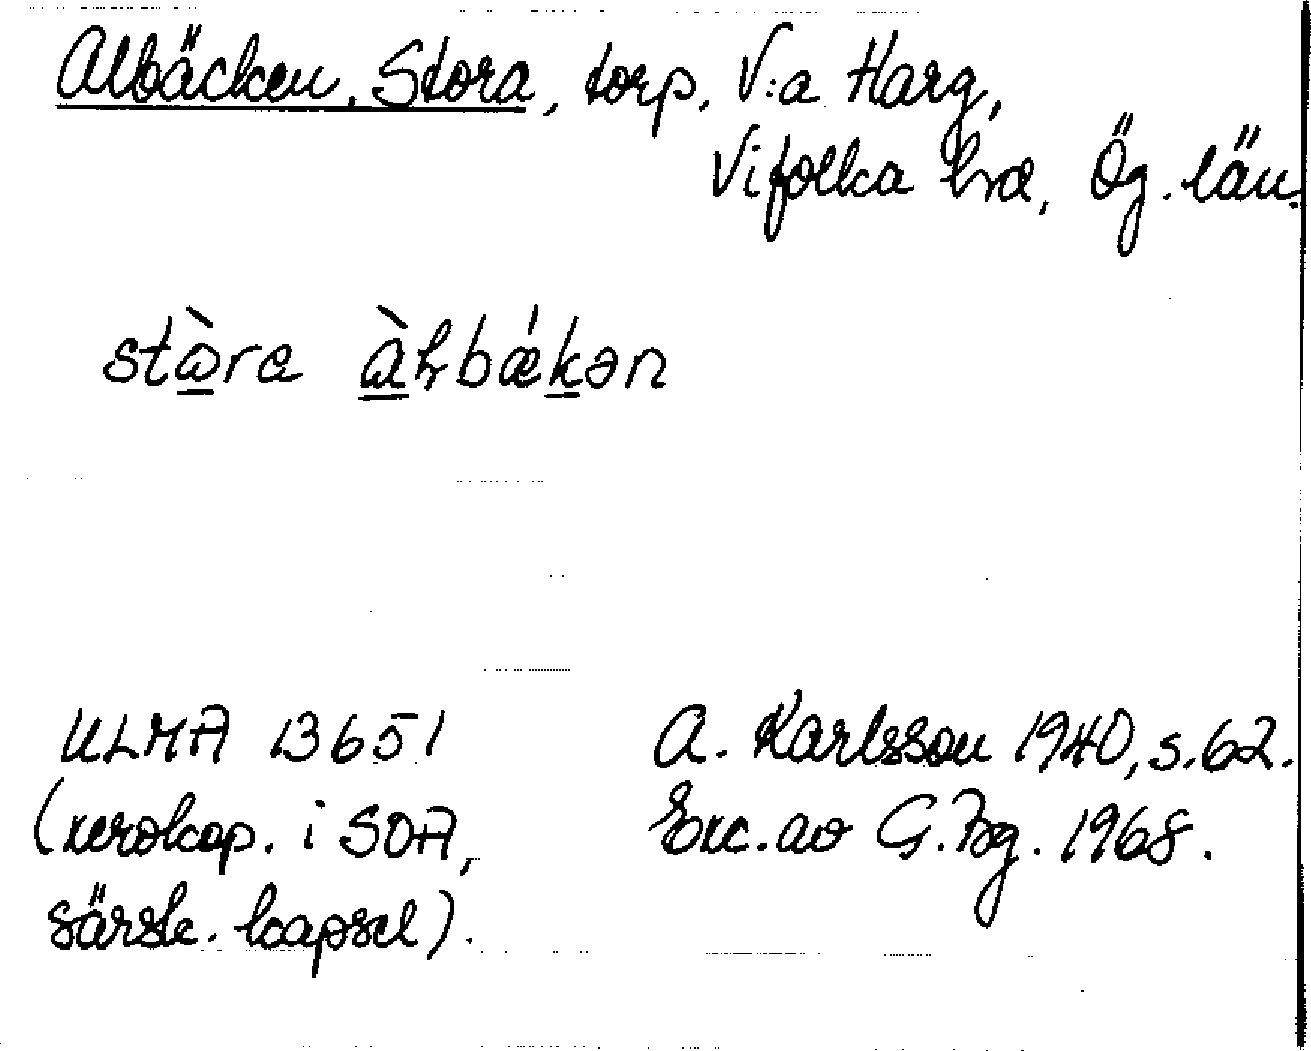 Albäcken, Stora, torp, V:a Harg,
Vifolka hrd, Ög. län.
stɷ̀ra ɷ̀ɽbǽkən
ULMA B 651
(xerokop. i SOA,
särsk. kapsel).
A. Karlsson 1940, s. 62.
Exc. av G. Bg. 1968.